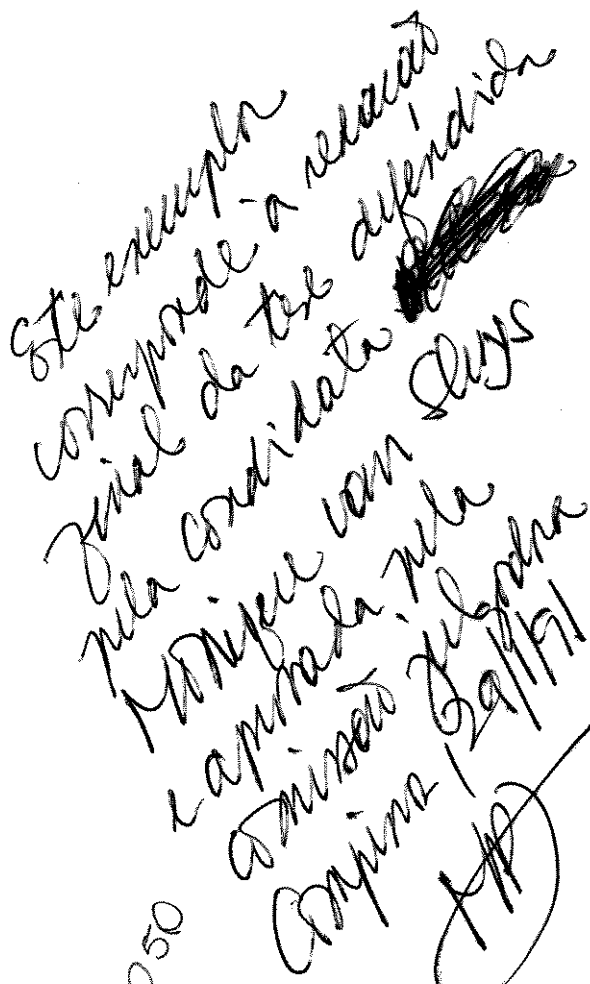 Este exemplar
corresponde à redação
final da tese defendida
pela candidata
Monique van Sluys
e aprovada pela
comissão julgadora
Campinas, 29/1/91
050